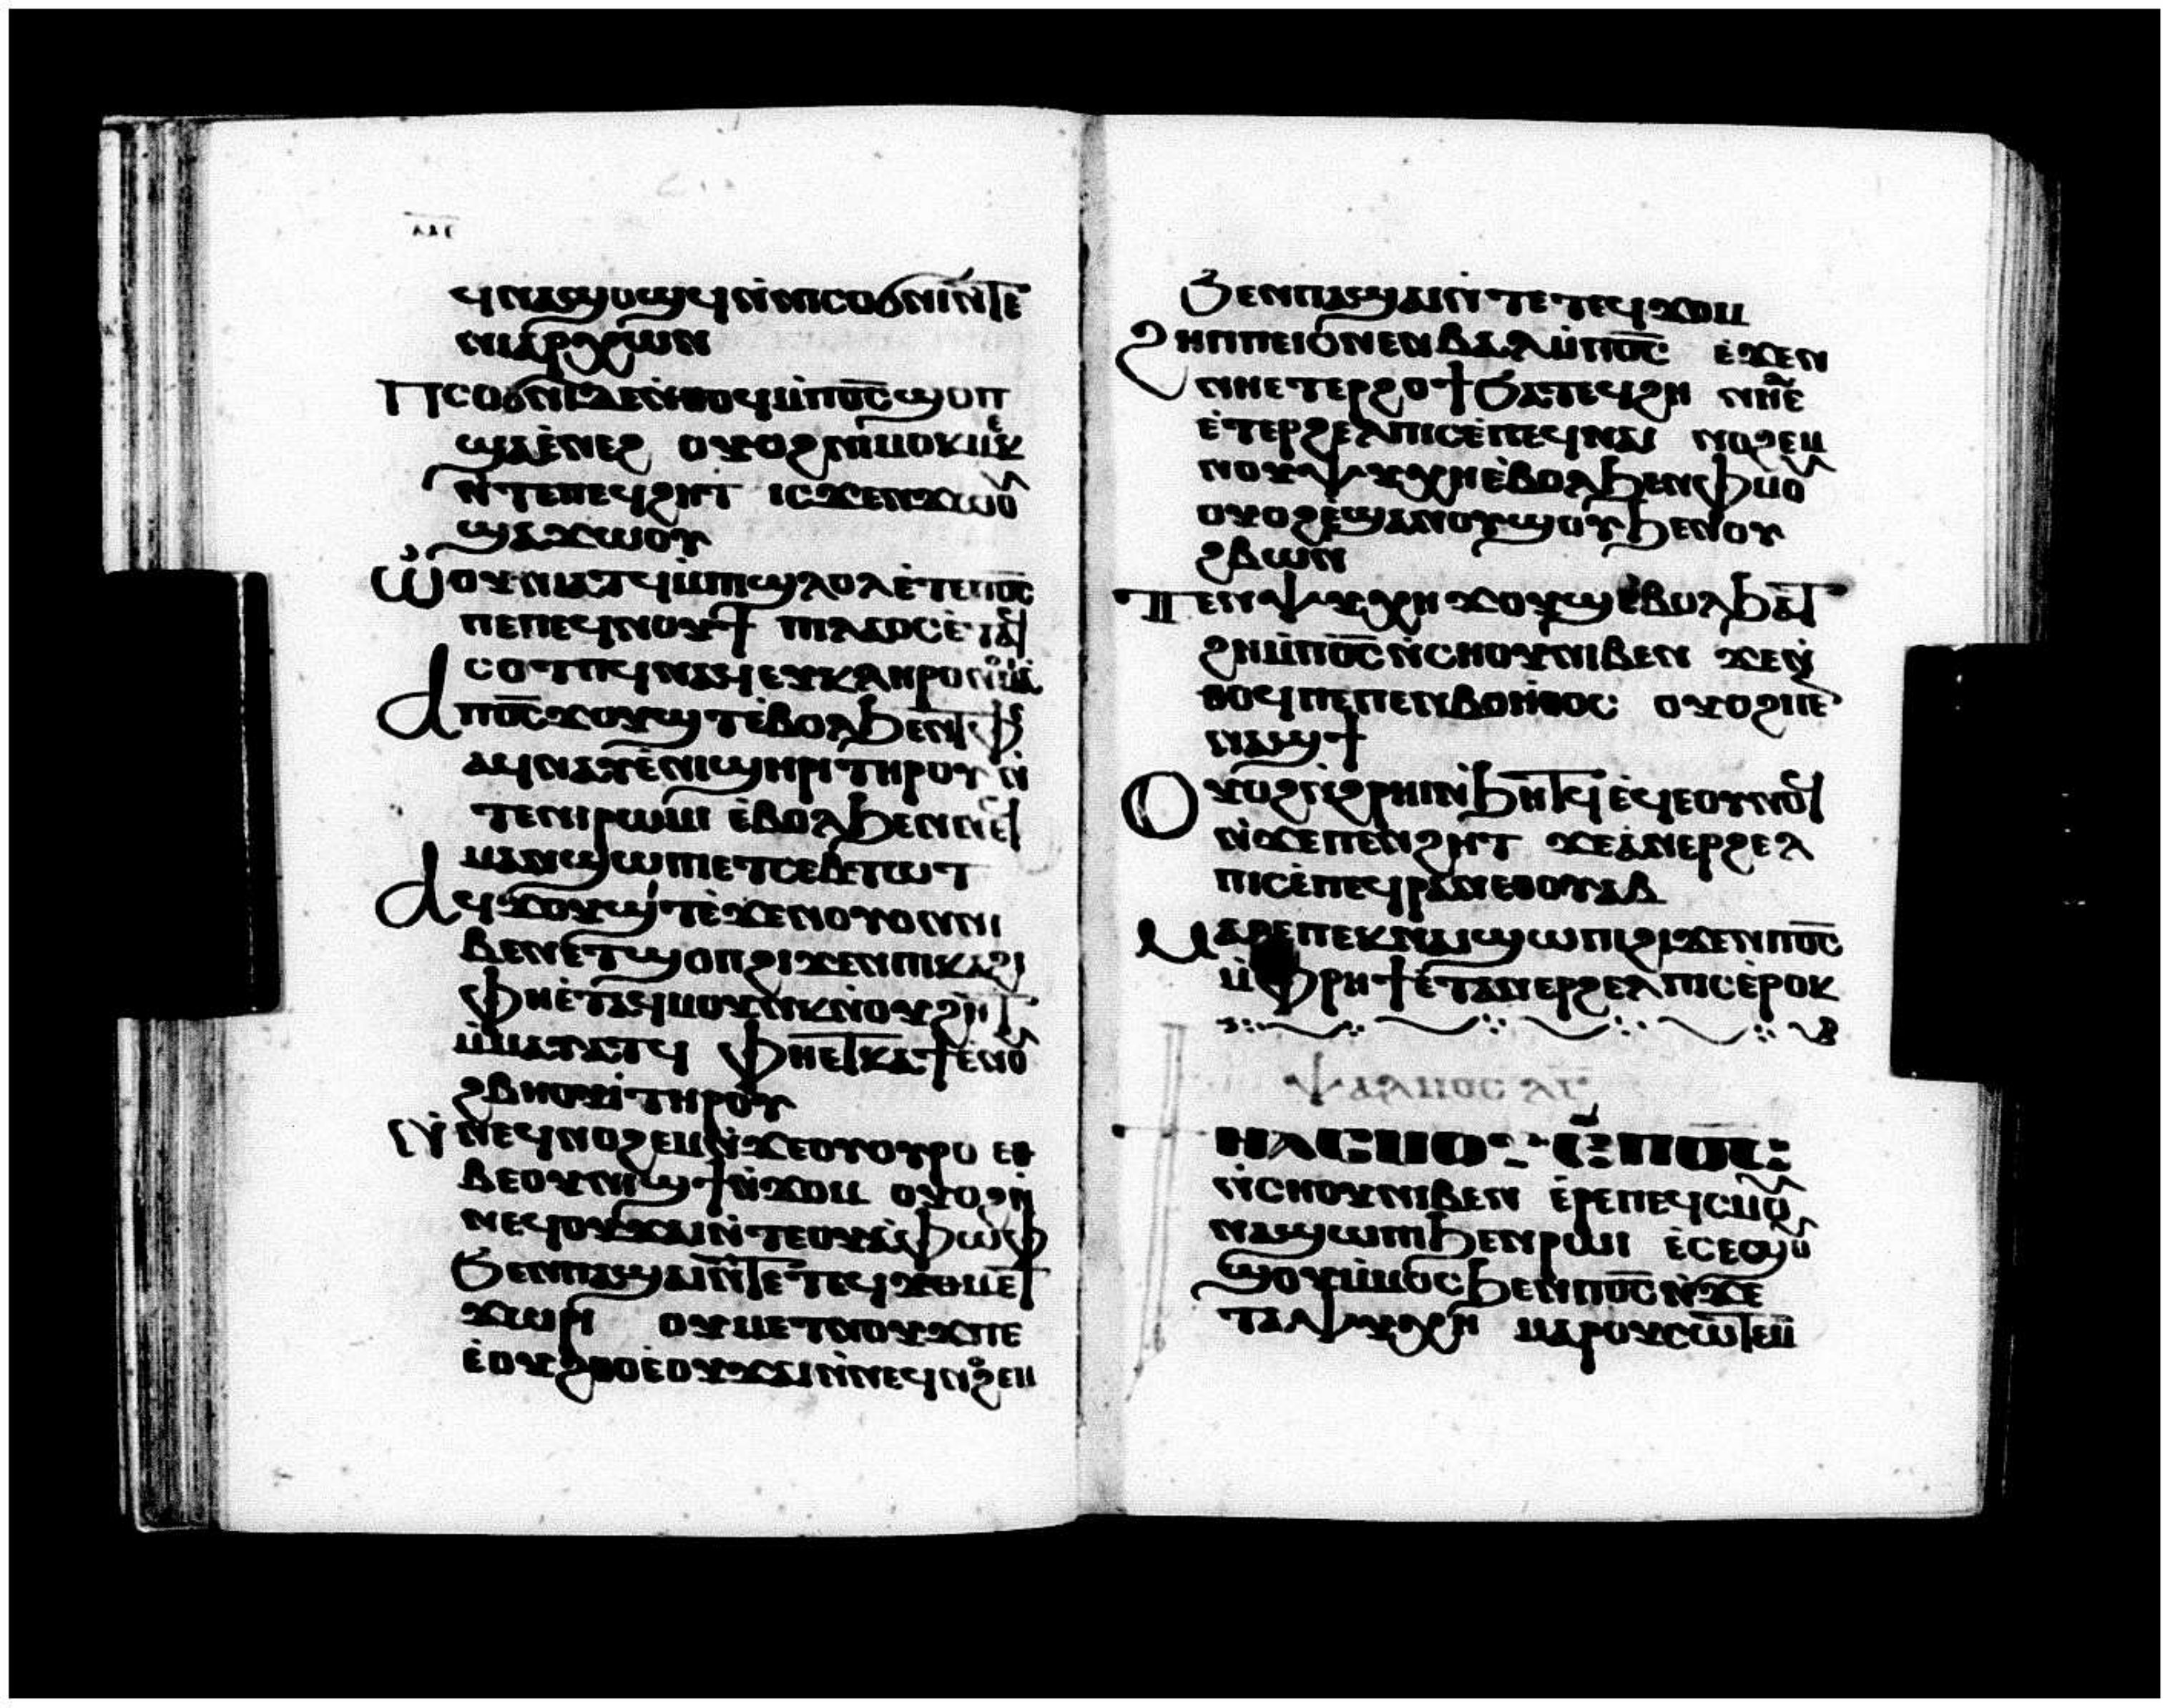 ϥⲛⲁϣⲟϣϥⲛ̀ⲛⲓⲥⲟϭⲛⲓⲛ̀ⲧⲉ
ⲛⲓⲁⲣⲭⲱⲛ
ⲡⲥⲟϭⲛⲓⲇⲉⲛ̀ⲑⲟϥⲙ̀ⲡⲟ̅ⲥ̅ϣⲟⲡ
ϣⲁⲉ̀ⲛⲉϩ ⲟⲩⲟϩⲛⲓⲙⲟⲕⲙⲉⲕ
ⲛ̀ⲧⲉⲡⲉϥϩⲏⲧ ⲓⲥϫⲉⲛϫⲱⲟⲩ
ϣⲁϫⲱⲟⲩ
ⲱ̀ⲟⲩⲛⲓⲁⲧϥⲙ̀ⲡⲓϣⲗⲟⲗⲉ̀ⲧⲉⲡⲟ̅ⲥ̅
ⲡⲉⲡⲉϥⲛⲟⲩϯ ⲡⲓⲗⲁⲟⲥⲉ̀ⲧⲁϥ
ⲥⲟⲧⲡϥⲛⲁϥⲉⲩⲕⲗⲏⲣⲟⲛⲟⲙⲓⲁ
ⲁⲡⲟ̅ⲥ̅ϫⲟⲩϣⲧⲉ̀ⲃⲟⲗϧⲉⲛⲧⲫⲉ
ⲁϥⲛⲁⲩⲉ̀ⲛⲓϣⲏⲣⲓⲧⲏⲣⲟⲩⲛ̀
ⲧⲉⲛⲓⲣⲱⲙⲓ ⲉ̀ⲃⲟⲗϧⲉⲛⲡⲉϥ
ⲙⲁⲛϣⲱⲡⲓⲉⲧⲥⲉⲃⲧⲱⲧ
ⲁϥϫⲟⲩϣⲧⲉ̀ϫⲉⲛⲟⲩⲟⲛⲛⲓ
ⲃⲉⲛⲉⲧϣⲟⲡϩⲓϫⲉⲛⲡⲓⲕⲁϩⲓ
ⲫⲏⲉ̀ⲧⲁϥⲙⲟⲩⲛⲕⲛ̀ⲟⲩϩⲏⲧ
ⲙ̀ⲙⲁⲩⲁⲧϥ ⲫⲏⲉⲧⲕⲁϯⲉ̀ⲛⲟⲩ
ϩⲃⲏⲟⲩⲓ̀ⲧⲏⲣⲟⲩ
ⲛ̀ⲛⲉϥⲛⲟϩⲉⲙⲛ̀ϫⲉⲟⲩⲟⲩⲣⲟ ⲉⲑ
ⲃⲉⲟⲩⲛⲓϣϯⲛ̀ϫⲟⲙ ⲟⲩⲟϩⲛ̀
ⲛⲉϥⲟⲩϫⲁⲓⲛ̀ⲧⲉⲟⲩⲁ̀ⲫⲱⲫ
ϧⲉⲛⲡⲁϣⲁⲓⲛ̀ⲧⲉⲧⲉϥϫⲟⲙⲉϥ
ϫⲱⲣⲓ ⲟⲩⲙⲉⲑⲛⲟⲩϫⲡⲉ
ⲉ̀ⲟⲩϩⲑⲟⲉ̀ⲟⲩϫⲁⲓⲛ̀ⲛⲉϥⲛⲟϩⲉⲙ
ϧⲉⲛⲡⲁϣⲁⲓⲛ̀ⲧⲉⲧⲉϥϫⲟⲙ
ϩⲏⲡⲡⲉⲓⲥⲛⲉⲛⲃⲁⲗⲙ̀ⲡⲟ̅ⲥ̅ ⲉ̀ϫⲉⲛ
ⲛⲏⲉⲧⲉⲣϩⲟϯϧⲁⲧⲉϥϩⲏ ⲛⲏⲉ̀
ⲉ̀ⲧⲉⲣϩⲉⲗⲡⲓⲥⲉ̀ⲡⲉϥⲛⲁⲓ ⲛⲟϩⲉⲙ
ⲛⲟⲩⲯⲩⲭⲏⲉ̀ⲃⲟⲗϧⲉⲛⲫⲙⲟⲩ
ⲟⲩⲟϩⲉ̀ϣⲁⲛⲟⲩϣⲟⲩϧⲉⲛⲟⲩ
ϩⲃⲱⲛ
ⲧⲉⲛⲯⲩⲭⲏ ϫⲟⲩϣⲧⲉ̀ⲃⲟⲗϧⲁⲧ
ϩⲏⲙ̀ⲡⲟ̅ⲥ̅ⲛ̀ⲥⲏⲟⲩⲛⲓⲃⲉⲛ ϫⲉⲛ̀
ⲑⲟϥⲡⲉⲡⲉⲛⲃⲟⲏ̀ⲑⲟⲥ ⲟⲩⲟϩⲡⲉ
ⲛⲁϣϯ
ⲟⲩⲟϩⲛ̀ϩⲣⲏⲓⲛ̀ϧⲏⲧϥⲉϥⲉⲟⲩⲛⲟϥ
ⲛ̀ϫⲉⲡⲉⲛϩⲏⲧ ϫⲉⲁ̀ⲛⲉⲣϩⲉⲗ
ⲡⲓⲥⲉ̀ⲡⲉϥⲣⲁⲛⲉⲑⲟⲩⲁⲃ
ⲙⲁⲣⲉⲡⲉⲕⲛⲁⲓϣⲱⲡⲓϩⲓϫⲉⲛⲡⲟ̅ⲥ̅
ⲙ̀ⲫⲣⲏϯⲉ̀ⲧⲁⲛⲉⲣϩⲉⲗⲡⲓⲥⲉ̀ⲣⲟⲕ
ⲯⲁⲗⲙⲟⲥ ⲗⲅ
ϯⲛⲁⲥⲙⲟⲩⲉ̀ⲡⲟ̅ⲥ̅
ⲛ̀ⲥⲏⲟⲩⲛⲓⲃⲉⲛ ⲉ̀ⲣⲉⲡⲉϥⲥⲙⲟⲩ
ⲛⲁϣⲱⲡⲓϧⲉⲛⲣⲱⲓ ⲉ̀ⲥⲉϣⲟⲩ
ϣⲟⲩⲙ̀ⲙⲟⲥϧⲉⲛⲡⲟ̅ⲥ̅ⲛ̀ϫⲉ
ⲧⲁⲯⲩⲭⲏ ⲙⲁⲣⲟⲩⲥⲱⲧⲉⲙ